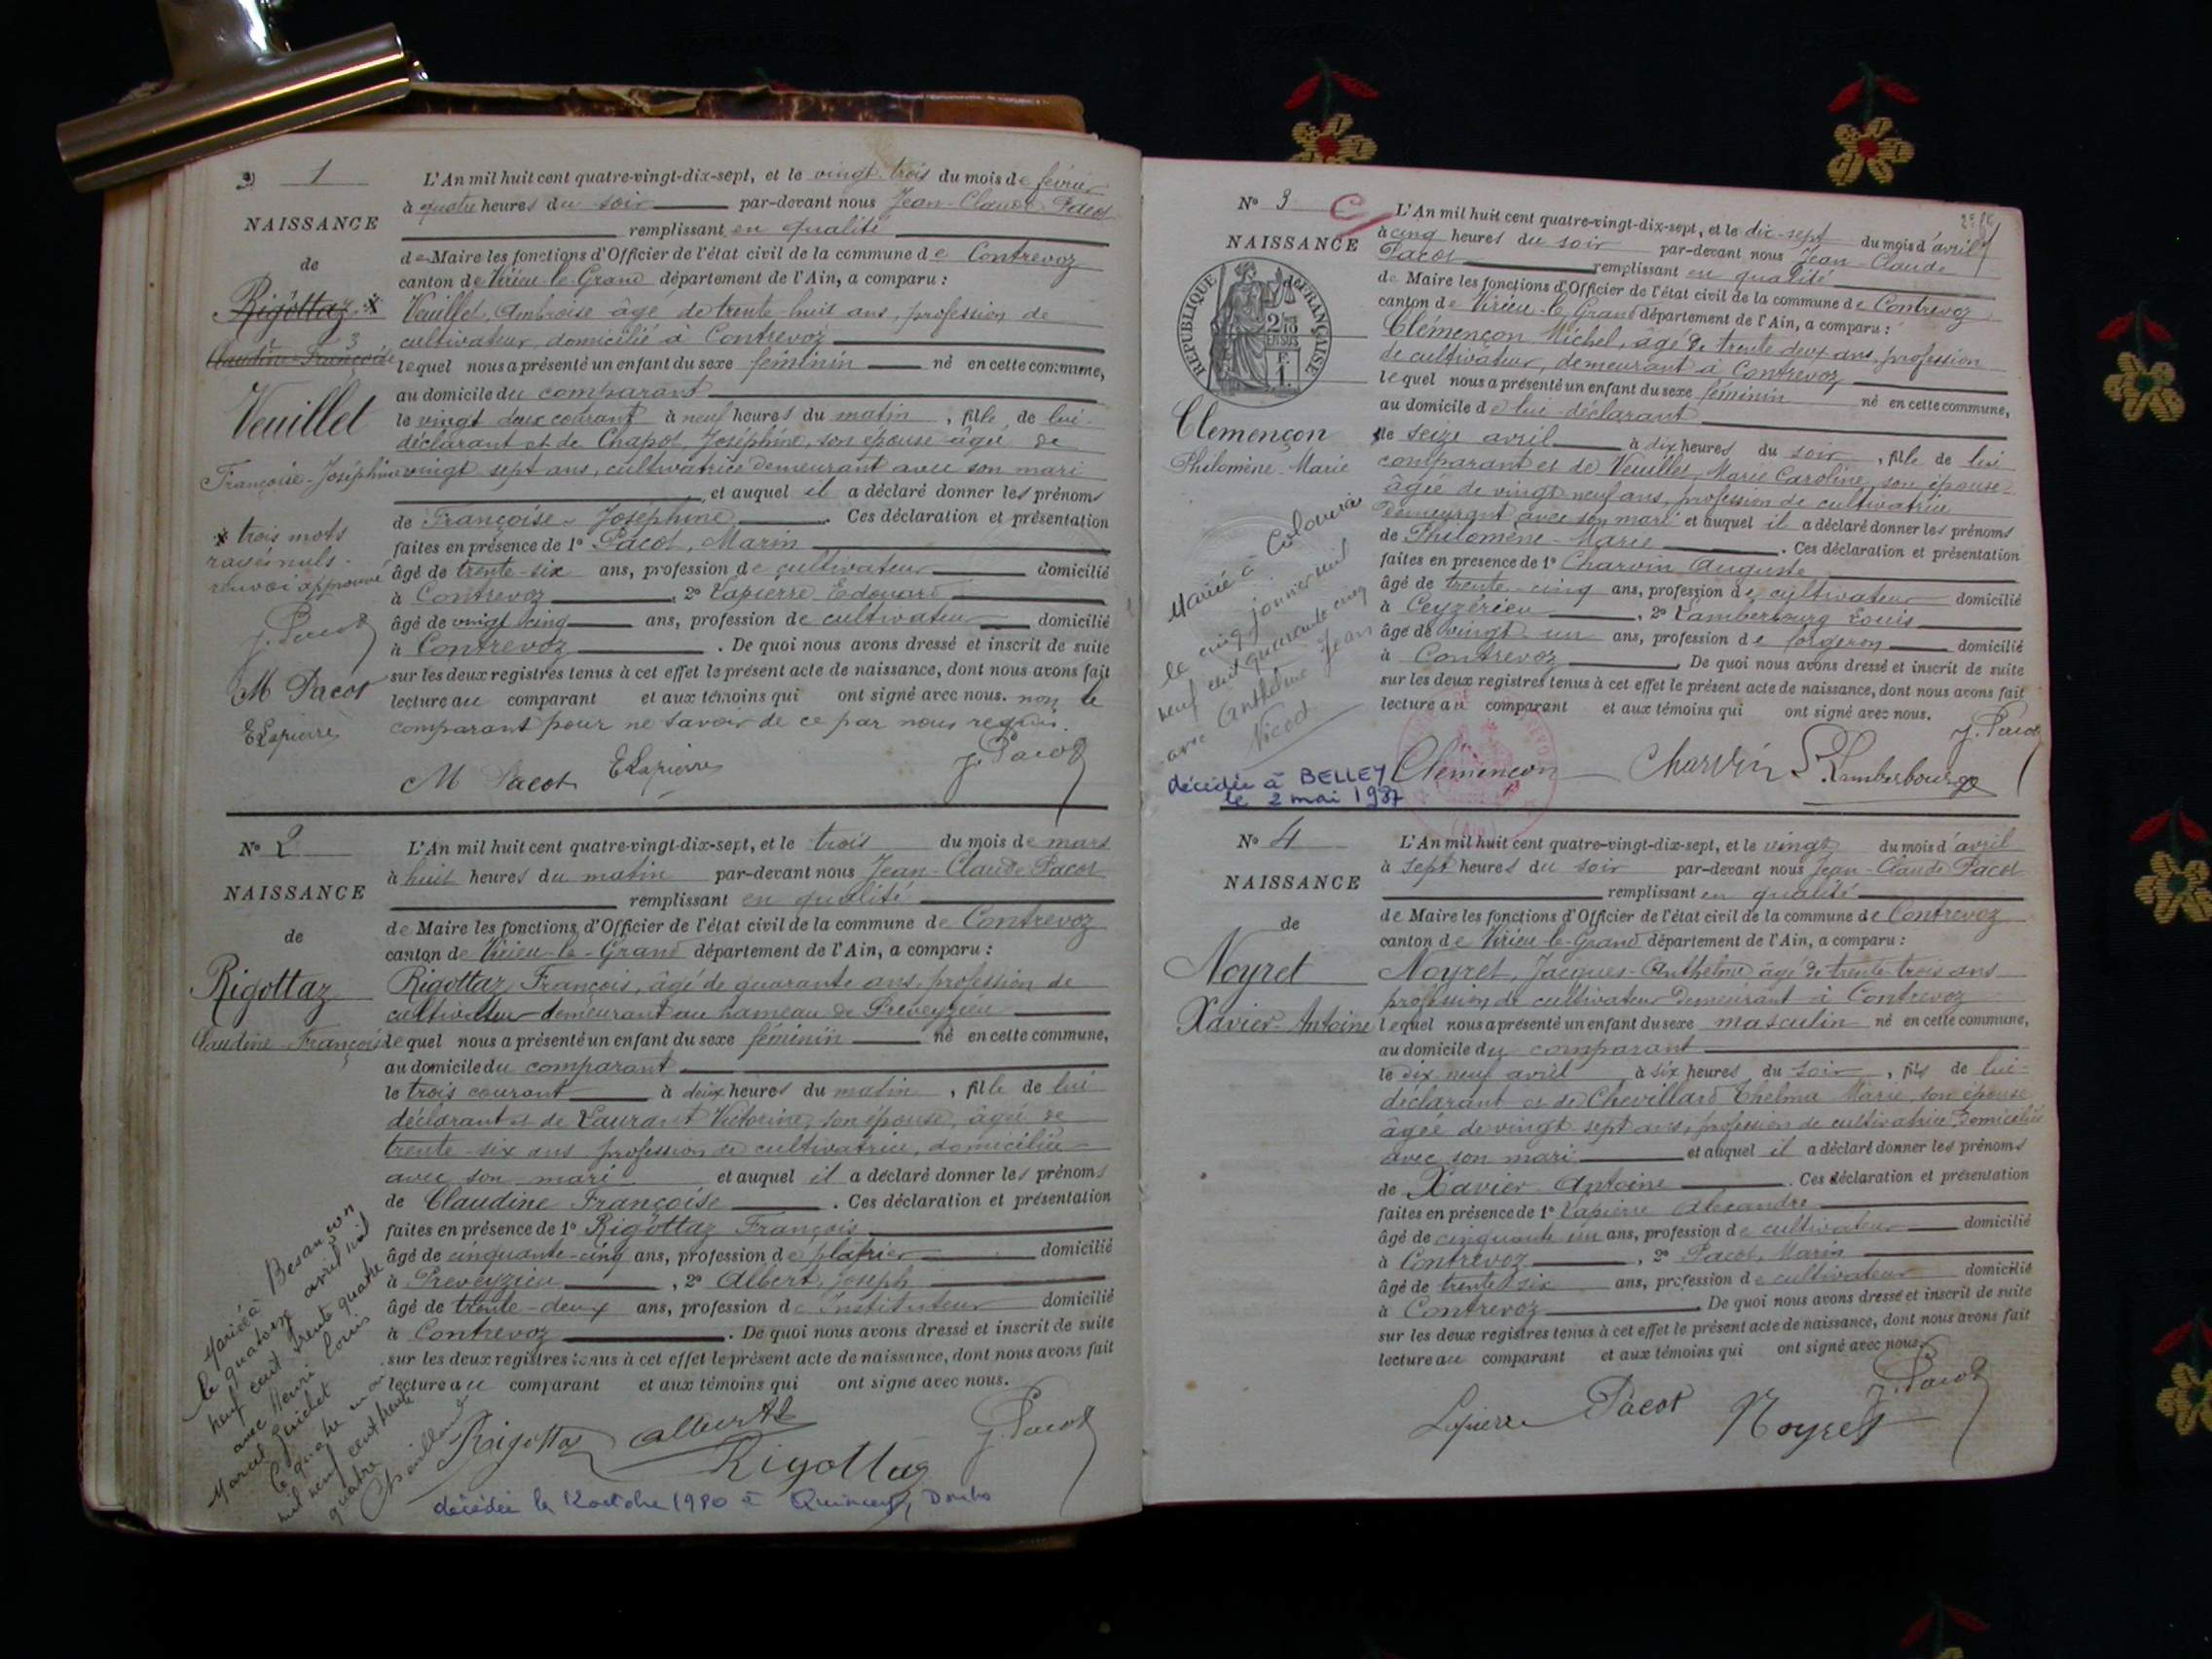 1
NAISSANCE
de
Rigottaz
Claudine-Françoise
Veuillet
Françoise-Joséphine
trois mots
rayés nuls.
renvoi approuvé
J. Pacot
M Pacot
E Lapierre
L'An mil huit cent quatre-vingt-dix-sept, et le vingt trois du mois de février
à quatre heures du soir par-devant nous Jean-Claude Pacot
remplissant en qualité
de Maire les fonctions d'Officier de l'état civil de la commune de Contrevoz
canton de Virieu-le-Grand département de l'Ain, a comparu :
Veuillet, Ambroise âgé de trente-huit ans, profession de
cultivateur, domicilié à Contrevoz
lequel nous a présenté un enfant du sexe féminin né en cette commune,
au domicile du comparant
le vingt deux courant à neuf heures du matin, fille de lui-
déclarant et de Chapot, Joséphine, son épouse âgée de
vingt sept ans, cultivatrice demeurant avec son mari
et auquel il a déclaré donner les prénoms
de Françoise-Joséphine. Ces déclaration et présentation
faites en présence de 1º Pacot, Marin
âgé de trente-six ans, profession de cultivateur domicilié
à Contrevoz, 2º Lapierre Edouard
âgé de vingt cinq ans, profession de cultivateur domicilié
à Contrevoz. De quoi nous avons dressé et inscrit de suite
sur les deux registres tenus à cet effet le présent acte de naissance, dont nous avons fait
lecture au comparant et aux témoins qui ont signé avec nous. non le
comparant pour ne savoir de ce par nous requis.
M Pacot E Lapierre J. Pacot
Nº 2
NAISSANCE
de
Rigottaz
Claudine-Françoise
L'An mil huit cent quatre-vingt-dix-sept, et le trois du mois de mars
à huit heures du matin par-devant nous Jean-Claude Pacot
remplissant en qualité
de Maire les fonctions d'Officier de l'état civil de la commune de Contrevoz
canton de Virieu-le-Grand département de l'Ain, a comparu :
Rigottaz François, âgé de quarante ans, profession de
cultivateur demeurant au hameau de Preveyzieu
lequel nous a présenté un enfant du sexe féminin né en cette commune,
au domicile du comparant
le trois courant à deux heures du matin, fille de lui
déclarant et de Laurant Victorine, son épouse, âgée de
trente-six ans profession de cultivatrice, domiciliée
avec son mari et auquel il a déclaré donner les prénoms
de Claudine Françoise. Ces déclaration et présentation
faites en présence de 1º Rigottaz François
âgé de cinquante-cinq ans, profession de plâtrier domicilié
à Preveyzieu, 2º Albert, Joseph
âgé de trente-deux ans, profession de Instituteur domicilié
à Contrevoz. De quoi nous avons dressé et inscrit de suite
sur les deux registres tenus à cet effet le présent acte de naissance, dont nous avons fait
lecture au comparant et aux témoins qui ont signé avec nous.
Rigottaz Albert J. Pacot
Rigottaz
Mariée à Besançon
le quatorze avril mil
neuf cent trente quatre
avec Henri Louis
Marcel Guichet
le quatre mai
mil neuf cent trente
quatre
décédée le 12 octobre 1980 à Quingey, Doubs
Nº 3 C
NAISSANCE
RÉPUBLIQUE FRANÇAISE
Clemençon
Philomène-Marie
Mariée à
le cinq janvier mil
neuf cent quarante cinq
avec Anthelme Jean
Nicod
décédée à BELLEY
le 2 mai 1987
L'An mil huit cent quatre-vingt-dix-sept, et le dix-sept du mois d'avril
à cinq heures du soir par-devant nous Jean-Claude
Pacot remplissant en qualité
de Maire les fonctions d'Officier de l'état civil de la commune de Contrevoz
canton de Virieu-le-Grand département de l'Ain, a comparu :
Clémençon Michel, âgé de trente deux ans, profession
de cultivateur, demeurant à Contrevoz
lequel nous a présenté un enfant du sexe féminin né en cette commune,
au domicile de lui-déclarant
le seize avril à dix heures du soir, fille de lui
comparant et de Veuillet, Marie Caroline, son épouse
âgée de vingt neuf ans, profession de cultivatrice
demeurant avec son mari et auquel il a déclaré donner les prénoms
de Philomène-Marie. Ces déclaration et présentation
faites en présence de 1º Charvin Auguste
âgé de trente-cinq ans, profession de cultivateur domicilié
à Ceyzérieu, 2º Lamberbourg Louis
âgé de vingt-un ans, profession de forgeron domicilié
à Contrevoz. De quoi nous avons dressé et inscrit de suite
sur les deux registres tenus à cet effet le présent acte de naissance, dont nous avons fait
lecture au comparant et aux témoins qui ont signé avec nous.
J. Pacot
Clémençon Charvin L. Lamberbourg
Nº 4
NAISSANCE
de
Noyret
Xavier-Antoine
L'An mil huit cent quatre-vingt-dix-sept, et le vingt du mois d'avril
à sept heures du soir par-devant nous Jean-Claude Pacot
remplissant en qualité
de Maire les fonctions d'Officier de l'état civil de la commune de Contrevoz
canton de Virieu-le-Grand département de l'Ain, a comparu :
Noyret, Jacques-Anthelme âgé de trente-trois ans
profession de cultivateur demeurant à Contrevoz
lequel nous a présenté un enfant du sexe masculin né en cette commune,
au domicile du comparant
le dix neuf avril à six heures du soir, fils de lui-
déclarant et de Chevillard Thelma Marie, son épouse
âgée de vingt sept ans, profession de cultivatrice, domiciliée
avec son mari et auquel il a déclaré donner les prénoms
de Xavier-Antoine. Ces déclaration et présentation
faites en présence de 1º Lapierre Alexandre
âgé de cinquante un ans, profession de cultivateur domicilié
à Contrevoz, 2º Pacot, Marin
âgé de trente six ans, profession de cultivateur domicilié
à Contrevoz. De quoi nous avons dressé et inscrit de suite
sur les deux registres tenus à cet effet le présent acte de naissance, dont nous avons fait
lecture au comparant et aux témoins qui ont signé avec nous.
Lapierre Pacot Noyret J. Pacot